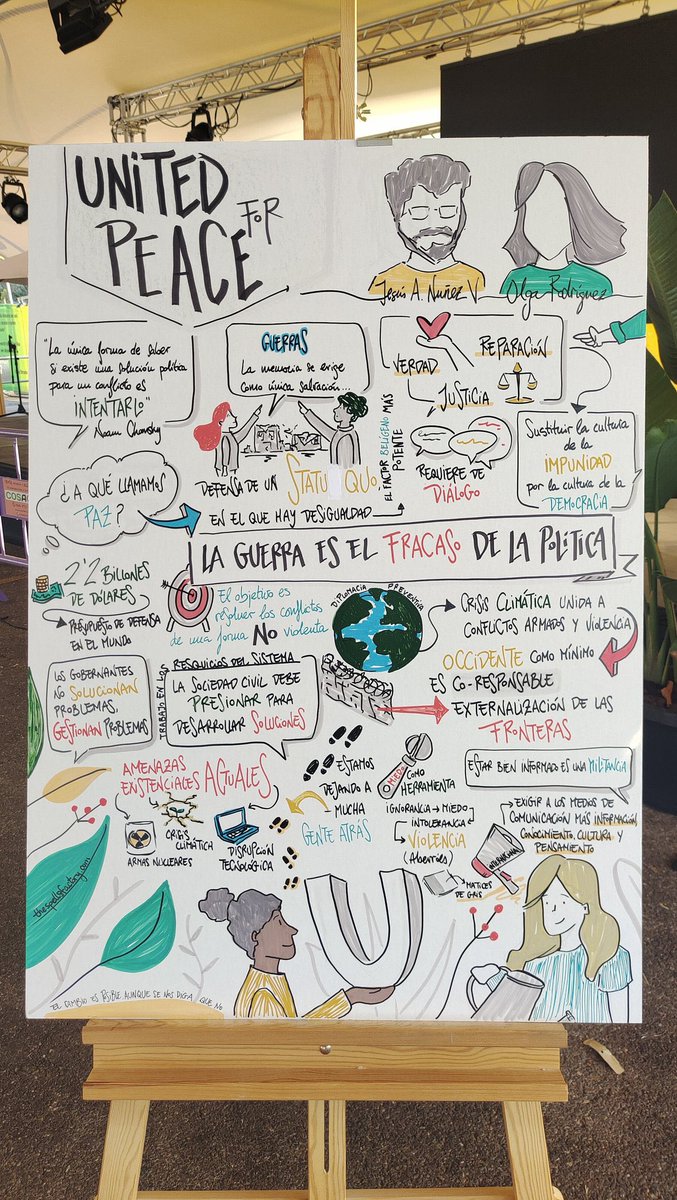 UNITED
FOR
PEACE
Jesús A. Nuñez V.
Olga Rodríguez
"La única forma de saber
si existe una solución política
para un conflicto es
INTENTARLO"
Noam Chomsky
GUERRAS
La memoria se erige
como única salvación...
VERDAD
REPARACIÓN
JUSTICIA
¿A QUÉ LLAMAMOS
PAZ?
DEFENSA DE UN STATU QUO,
EN EL QUE HAY DESIGUALDAD
EL FACTOR BELÍGENO MAS
POTENTE
REQUIERE DE
DIÁLOGO
Sustituir la cultura
de la
IMPUNIDAD
por la cultura de la
DEMOCRACIA
LA GUERRA ES EL FRACASO DE LA POLÍTICA
2'2 BILLONES
DE DÓLARES
PRESUPUESTO DE DEFENSA
EN EL MUNDO
El objetivo es
resolver los conflictos
de una forma NO violenta
DIPLOMACIA PREVENTIVA
CRISIS CLIMÁTICA UNIDA A
CONFLICTOS ARMADOS Y VIOLENCIA
OCCIDENTE COMO MÍNIMO
ES CO-RESPONSABLE
EXTERNALIZACIÓN DE LAS
FRONTERAS
LOS GOBERNANTES
NO SOLUCIONAN
PROBLEMAS,
GESTIONAN PROBLEMAS
TRABAJO EN LOS
RESQUICIOS DEL SISTEMA
LA SOCIEDAD CIVIL DEBE
PRESIONAR PARA
DESARROLLAR SOLUCIONES
AMENAZAS
EXISTENCIALES AGUALES
ARMAS NUCLEARES
CRISIS
CLIMÁTICA
DISRUPCIÓN
TECNOLÓGICA
ESTAMOS
DEJANDO A
MUCHA
GENTE ATRÁS
MIEDO
COMO
HERRAMIENTA
IGNORANCIA → MIEDO
INTOLERANCIA
VIOLENCIA
(Alberrios)
ESTAR BIEN INFORMADO ES UNA MILITANCIA
EXIGIR A LOS MEDIOS DE
COMUNICACIÓN MÁS INFORMACIÓN
CONOCIMIENTO, CULTURA Y
PENSAMIENTO
MATICES
DE GRIS
thespellsfactory.com
U
EL CAMBIO ES POSIBLE AUNQUE SE NOS DIGA QUE NO